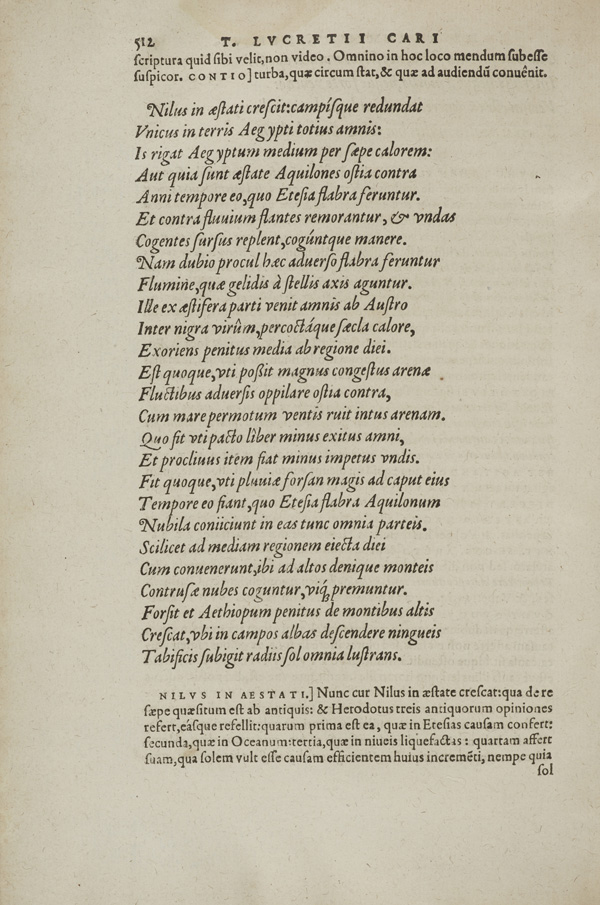 512 T. LVCRETII CARI
scriptura quid sibi velit, non video. Omnino in hoc loco mendum subesse
suspicor. CONTIO] turba, quæ circum stat, & quæ ad audiendū conuênit.
Nilus in æstati crescit: campísque redundat
Vnicus in terris Aegypti totius amnis:
Is rigat Aegyptum medium per sæpe calorem:
Aut quia sunt æstate Aquilones ostia contra
Anni tempore eo, quo Etesia flabra feruntur.
Et contra fluuium flantes remorantur, & vndas
Cogentes sursus replent, cogúntque manere.
Nam dubio procul hæc aduerso flabra feruntur
Flumine, quæ gelidis à stellis axis aguntur.
Ille ex æstifera parti venit amnis ab Austro
Inter nigra virûm, percoctáque sæcla calore,
Exoriens penitus media ab regione diei.
Est quoque, vti poßit magnus congestus arenæ
Fluctibus aduersis oppilare ostia contra,
Cum mare permotum ventis ruit intus arenam.
Quo fit vti pacto lìber minus exitus amni,
Et procliuus item fiat minus impetus vndis.
Fit quoque, vti pluuiæ forsan magis ad caput eius
Tempore eo fiant, quo Etesia flabra Aquilonum
Nubila coniiciunt in eas tunc omnia parteis.
Scilicet ad mediam regionem eiecta diei
Cum conuenerunt, ibi ad altos denique monteis
Contrusæ nubes coguntur, viq́; premuntur.
Forsit et Aethiopum penitus de montibus altis
Crescat, vbi in campos albas descendere ningueis
Tabificis subigit radiis sol omnia lustrans.
NILVS IN AESTATI.] Nunc cur Nilus in æstate crescat: qua de re
sæpe quæsitum est ab antiquis: & Herodotus treis antiquorum opiniones
refert, eásque refellit: quarum prima est ea, quæ in Etesias causam confert:
secunda, quæ in Oceanum: tertia, quæ in niueis liquefactas: quartam affert
suam, qua solem vult esse causam efficientem huius incremēti, nempe quia
sol